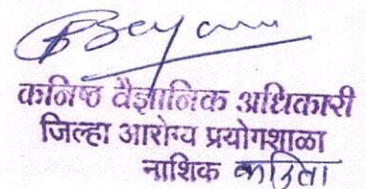 कनिष्ठ वैज्ञानिक अधिकारी
जिल्हा आरोग्य प्रयोगशाळा
नाशिक करिता